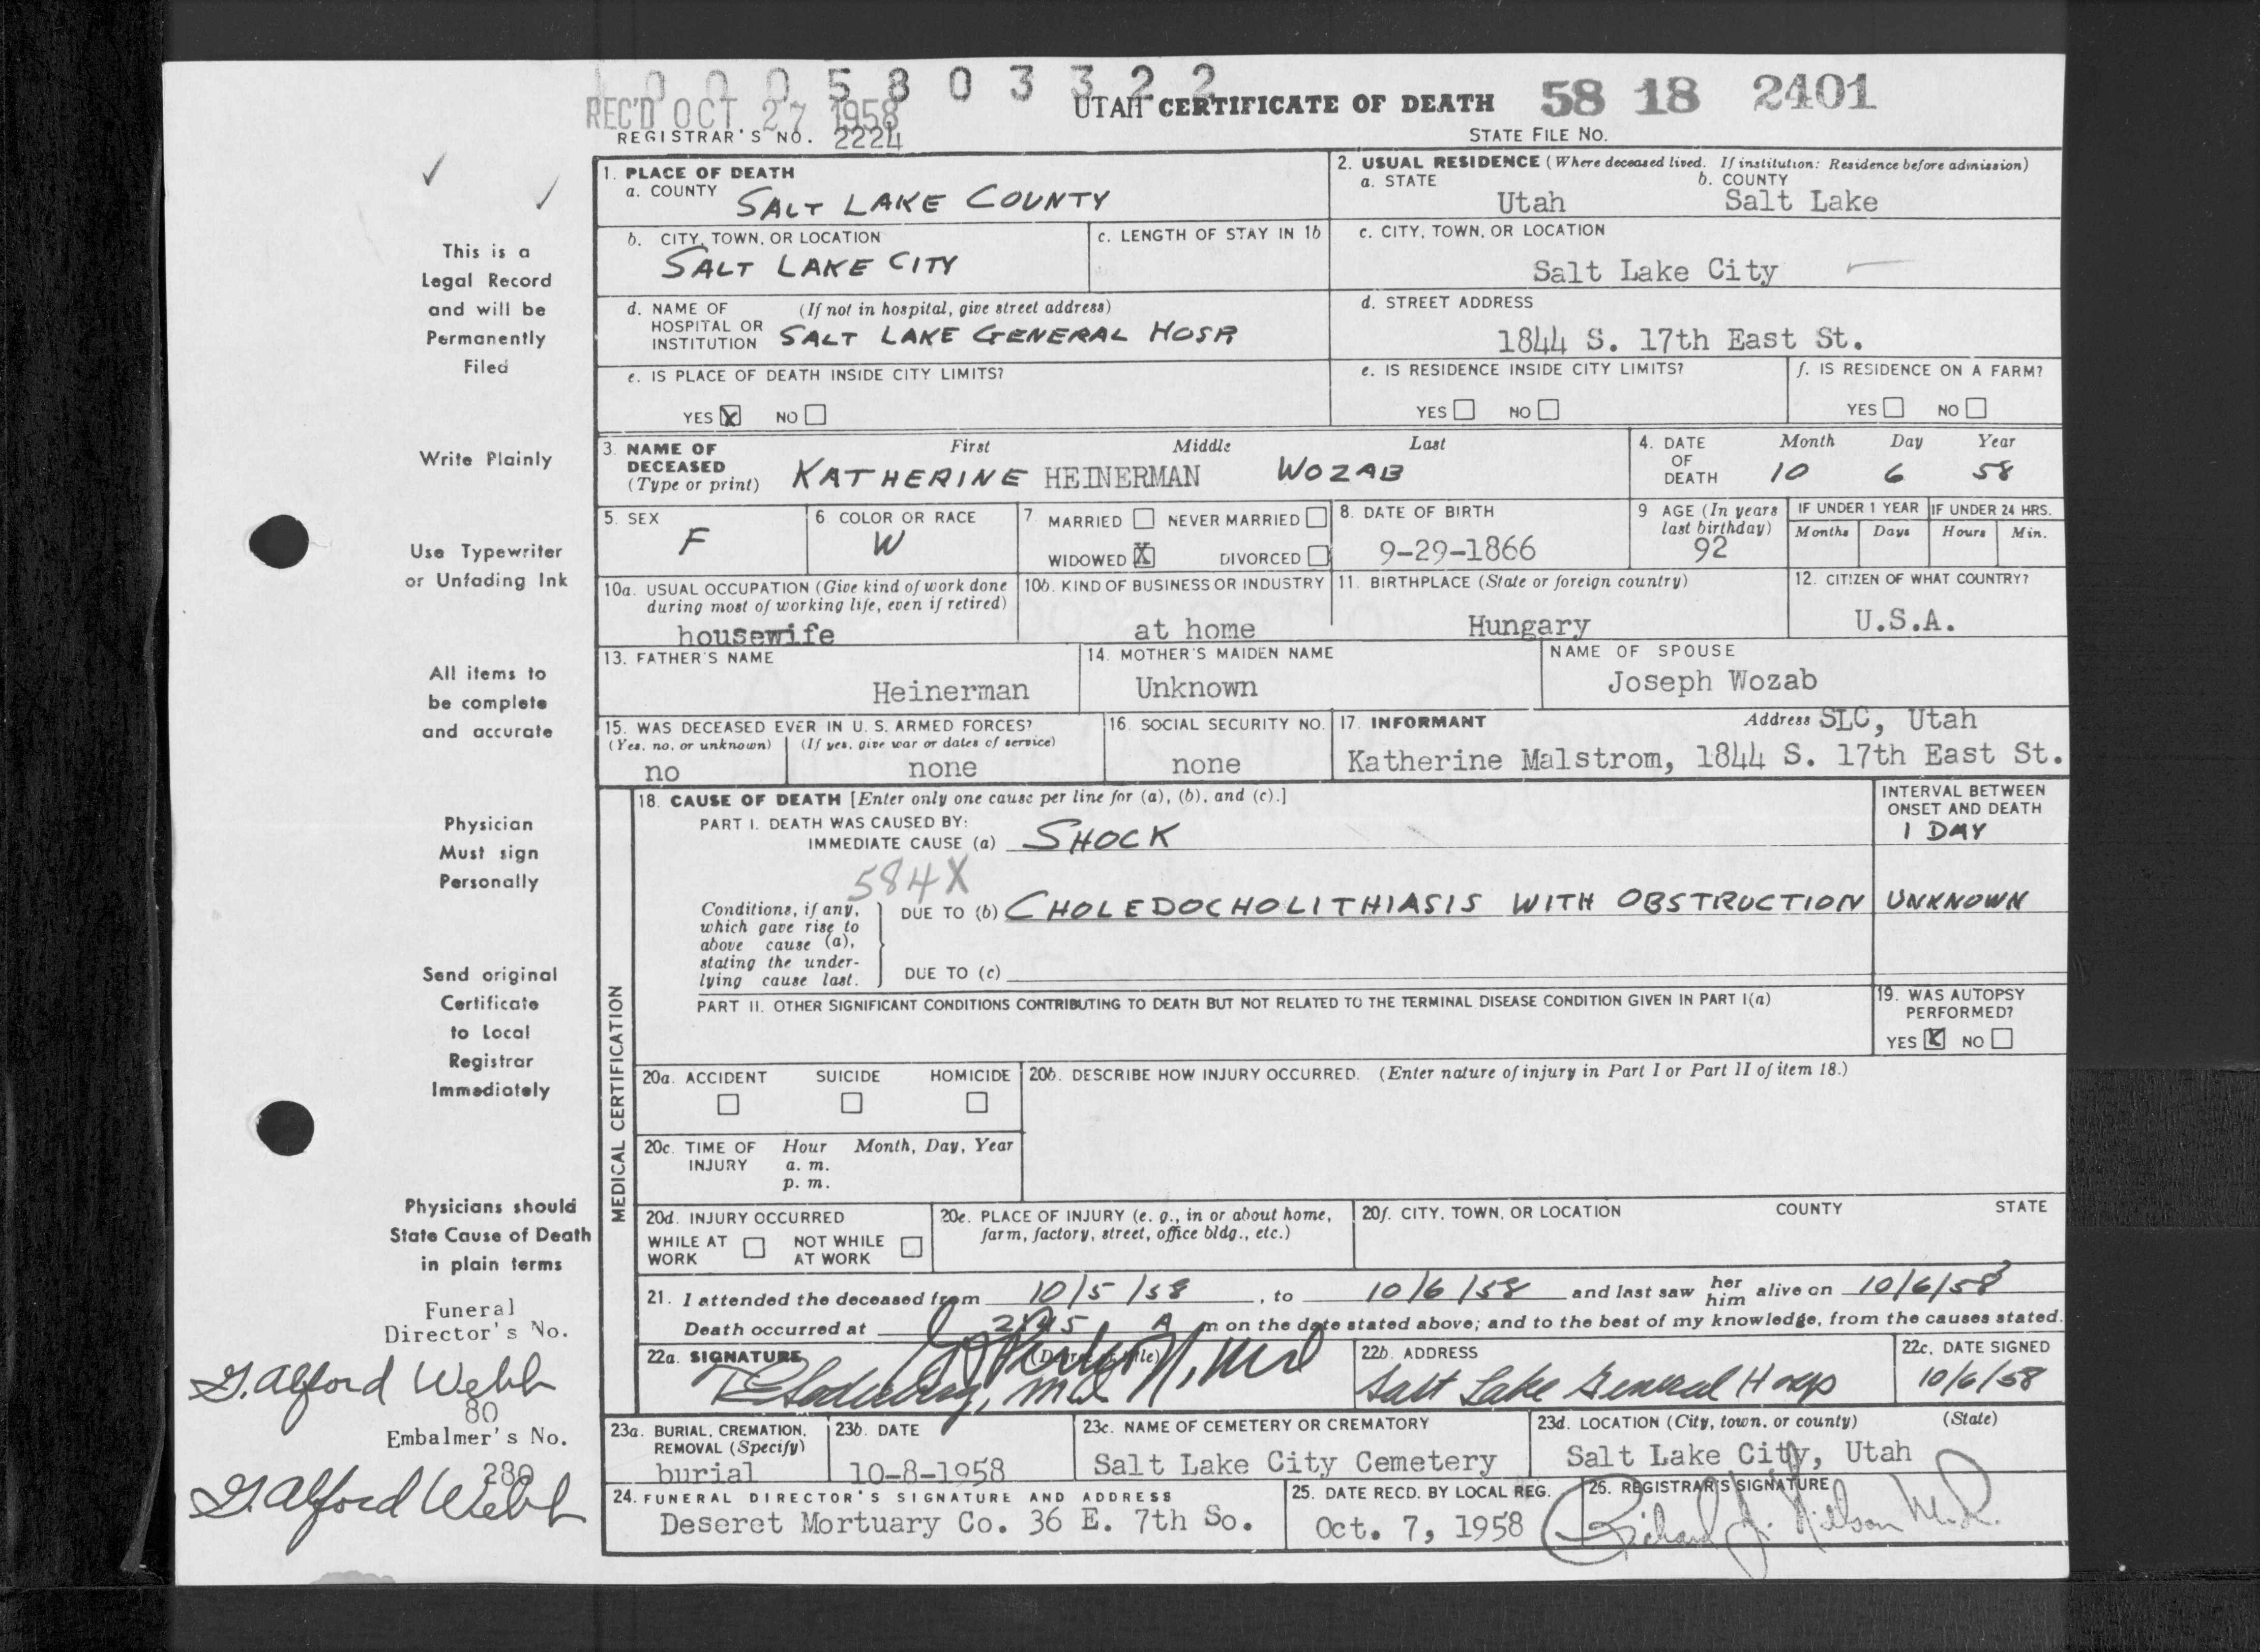 1 0 0 0 5 8 0 3 3 2 2
REC'D OCT 27 1958
UTAH CERTIFICATE OF DEATH 58 18 2401
REGISTRAR'S NO. 2224
STATE FILE NO.
This is a
Legal Record
and will be
Permanently
Filed
Write Plainly
Use Typewriter
or Unfading Ink
All items to
be complete
and accurate
Physician
Must sign
Personally
Send original
Certificate
to Local
Registrar
Immediately
Physicians should
State Cause of Death
in plain terms
Funeral
Director's No.
G. Alford Webb
80
Embalmer's No.
280
G. Alford Webb
1. PLACE OF DEATH
a. COUNTY SALT LAKE COUNTY
2. USUAL RESIDENCE (Where deceased lived. If institution: Residence before admission)
a. STATE b. COUNTY
Utah Salt Lake
b. CITY, TOWN, OR LOCATION
SALT LAKE CITY
c. LENGTH OF STAY IN 1b
c. CITY, TOWN, OR LOCATION
Salt Lake City
d. NAME OF (If not in hospital, give street address)
HOSPITAL OR
INSTITUTION SALT LAKE GENERAL HOSP
d. STREET ADDRESS
1844 S. 17th East St.
e. IS PLACE OF DEATH INSIDE CITY LIMITS?
YES X NO
e. IS RESIDENCE INSIDE CITY LIMITS?
YES NO
f. IS RESIDENCE ON A FARM?
YES NO
3. NAME OF First Middle Last
DECEASED
(Type or print) KATHERINE HEINERMAN WOZAB
4. DATE Month Day Year
OF
DEATH 10 6 58
5. SEX
F
6. COLOR OR RACE
W
7. MARRIED NEVER MARRIED
WIDOWED X DIVORCED
8. DATE OF BIRTH
9-29-1866
9 AGE (In years
last birthday)
92
IF UNDER 1 YEAR IF UNDER 24 HRS.
Months Days Hours Min.
10a. USUAL OCCUPATION (Give kind of work done
during most of working life, even if retired)
housewife
10b. KIND OF BUSINESS OR INDUSTRY
at home
11. BIRTHPLACE (State or foreign country)
Hungary
12. CITIZEN OF WHAT COUNTRY?
U.S.A.
13. FATHER'S NAME
Heinerman
14. MOTHER'S MAIDEN NAME
Unknown
NAME OF SPOUSE
Joseph Wozab
15. WAS DECEASED EVER IN U. S. ARMED FORCES?
(Yes, no, or unknown) (If yes, give war or dates of service)
no none
16. SOCIAL SECURITY NO.
none
17. INFORMANT Address SLC, Utah
Katherine Malstrom, 1844 S. 17th East St.
MEDICAL CERTIFICATION
18. CAUSE OF DEATH [Enter only one cause per line for (a), (b), and (c).]
PART I. DEATH WAS CAUSED BY:
IMMEDIATE CAUSE (a) SHOCK
INTERVAL BETWEEN
ONSET AND DEATH
1 DAY
584X
Conditions, if any,
which gave rise to
above cause (a),
stating the under-
lying cause last.
DUE TO (b) CHOLEDOCHOLITHIASIS WITH OBSTRUCTION UNKNOWN
DUE TO (c)
PART II. OTHER SIGNIFICANT CONDITIONS CONTRIBUTING TO DEATH BUT NOT RELATED TO THE TERMINAL DISEASE CONDITION GIVEN IN PART I(a)
19. WAS AUTOPSY
PERFORMED?
YES X NO
20a. ACCIDENT SUICIDE HOMICIDE
20b. DESCRIBE HOW INJURY OCCURRED. (Enter nature of injury in Part I or Part II of item 18.)
20c. TIME OF Hour Month, Day, Year
INJURY a. m.
p. m.
20d. INJURY OCCURRED
WHILE AT NOT WHILE
WORK AT WORK
20e. PLACE OF INJURY (e. g., in or about home,
farm, factory, street, office bldg., etc.)
20f. CITY, TOWN, OR LOCATION COUNTY STATE
21. I attended the deceased from 10/5/58, to 10/6/58 and last saw her him alive on 10/6/58
Death occurred at 2:45 A m on the date stated above; and to the best of my knowledge, from the causes stated.
22a. SIGNATURE (Degree or title)
22b. ADDRESS
Salt Lake General Hosp
22c. DATE SIGNED
10/6/58
23a. BURIAL, CREMATION,
REMOVAL (Specify)
burial
23b. DATE
10-8-1958
23c. NAME OF CEMETERY OR CREMATORY
Salt Lake City Cemetery
23d. LOCATION (City, town, or county) (State)
Salt Lake City, Utah
24. FUNERAL DIRECTOR'S SIGNATURE AND ADDRESS
Deseret Mortuary Co. 36 E. 7th So.
25. DATE RECD. BY LOCAL REG.
Oct. 7, 1958
26. REGISTRAR'S SIGNATURE
Richard J. Nilson M.D.